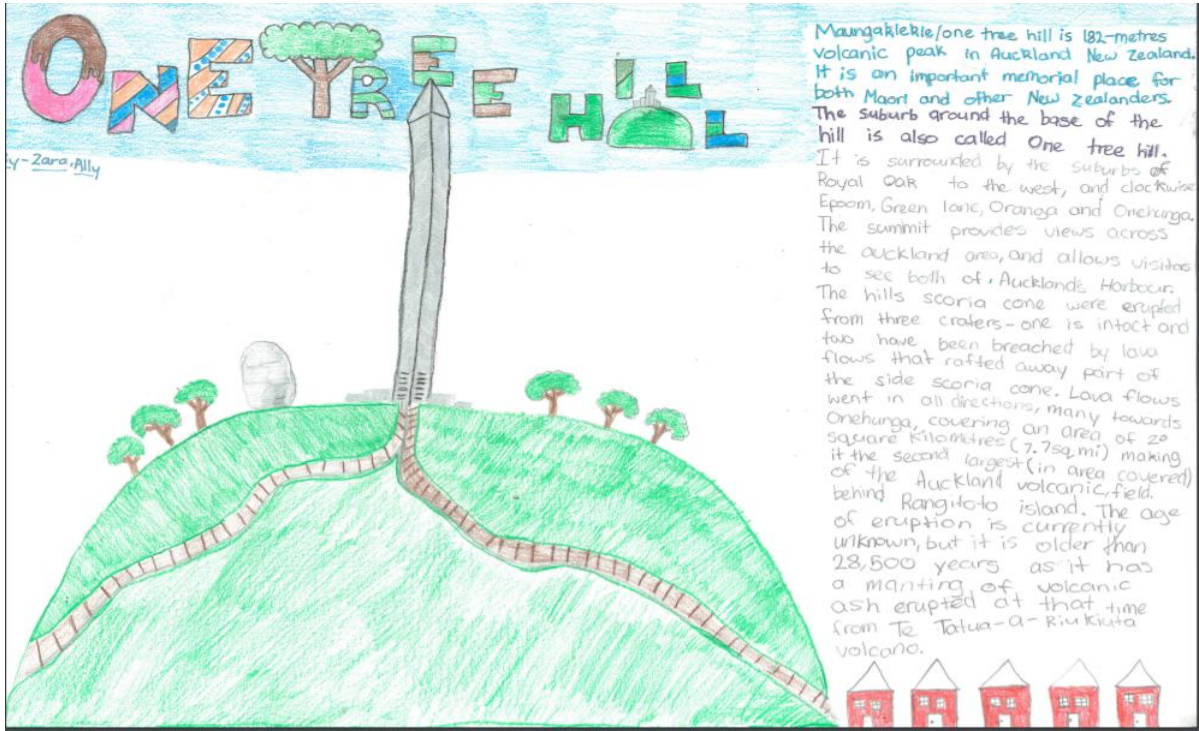 ONE TREE HILL
By-Zara, Ally
Maungakiekie/one tree hill is 182-metres
volcanic peak in Auckland New Zealand.
It is an important memorial place for
both Maori and other New Zealanders.
The suburb around the base of the
hill is also called One tree hill.
It is surrounded by the suburbs of
Royal Oak to the west, and clockwise
Epoom, Green lane, Oranga and Onehunga.
The summit provides views across
the auckland area, and allows visitors
to see both of, Aucklands Harbour.
The hills scoria cone were erupted
from three craters-one is intact and
two have been breached by lava
flows that rafted away part of
the side scoria cone. Lava flows
went in all directions, many towards
Onehunga, covering an area of 20
square Kilometres (7.7sq.mi) making
it the second largest (in area covered)
of the Auckland volcanic, field.
behind Rangitoto island. The age
of eruption is currently
unknown, but it is older than
28,500 years as it has
a manting of volcanic
ash erupted at that time
from Te Tatua-a-Riukiuta
volcano.